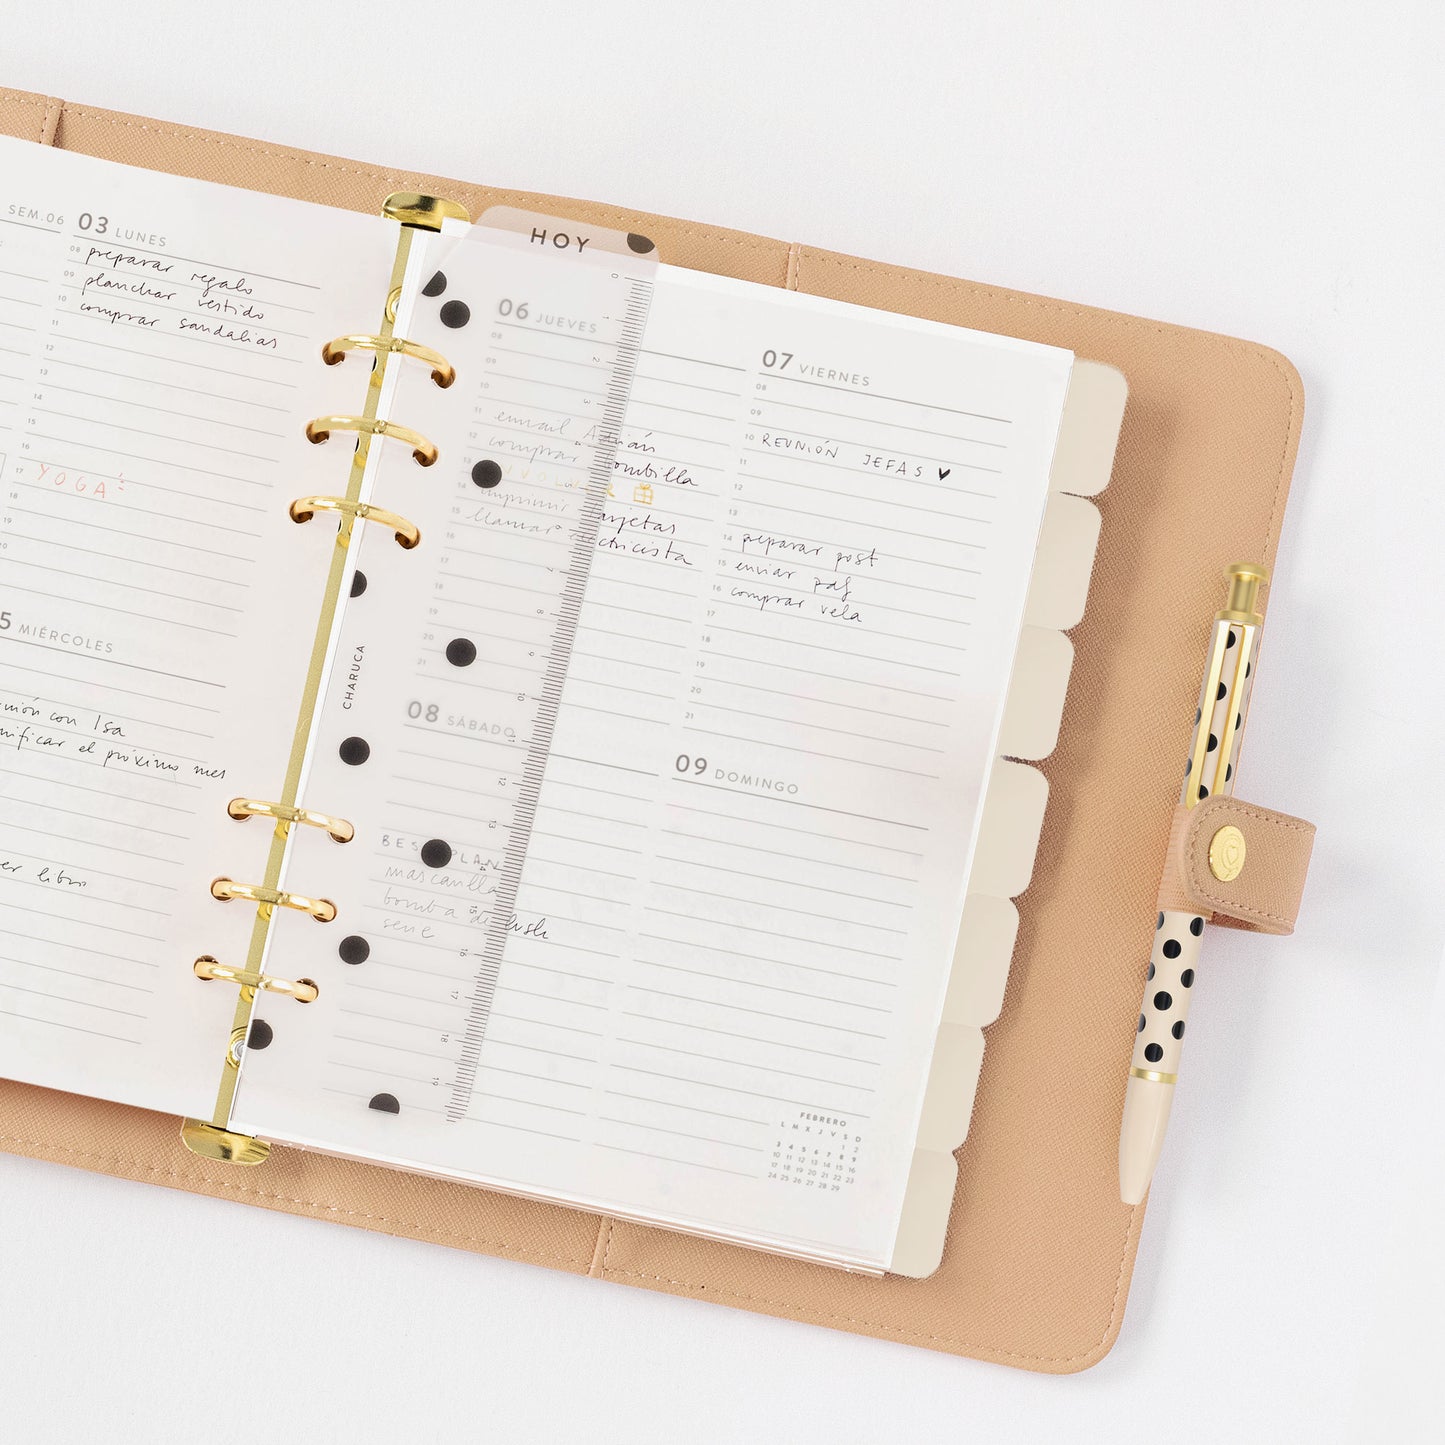 SEM.06
03 LUNES
08
preparar regalo
09
planchar vestido
10
comprar sandalias
11
12
15
16
17
YOGA
18
19
20
5 MIÉRCOLES
con Isa
el próximo mes
libro
HOY
CHARUCA
0
1
2
3
4
7
8
9
10
11
12
13
14
15
16
17
18
19
06 JUEVES
08
09
10
11
email Adrián
12
comprar bombilla
13
14
imprimir tarjetas
15
llamar electricista
16
17
18
19
20
21
07 VIERNES
08
09
10
REUNIÓN JEFAS ♥
11
12
13
14
preparar post
15
enviar pdf
16
comprar vela
17
18
19
20
21
08 SÁBADO
PLAN
mascarilla
bomba de lush
serie
09 DOMINGO
FEBRERO
L M X J V S D
1 2
3 4 5 6 7 8 9
10 11 12 13 14 15 16
17 18 19 20 21 22 23
24 25 26 27 28 29